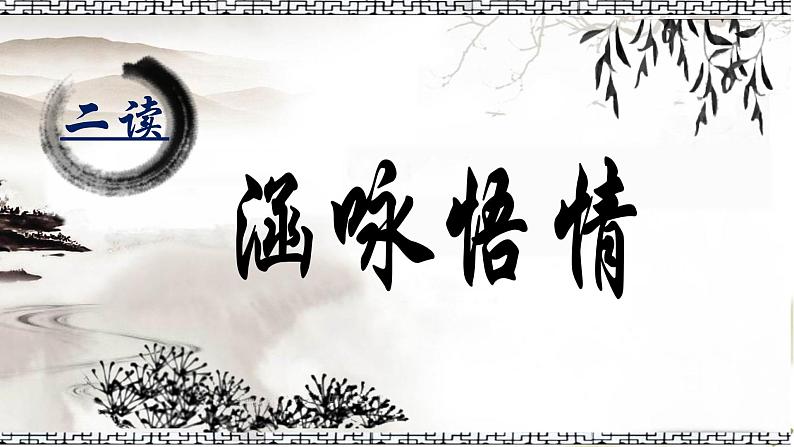 二读
涵咏悟情